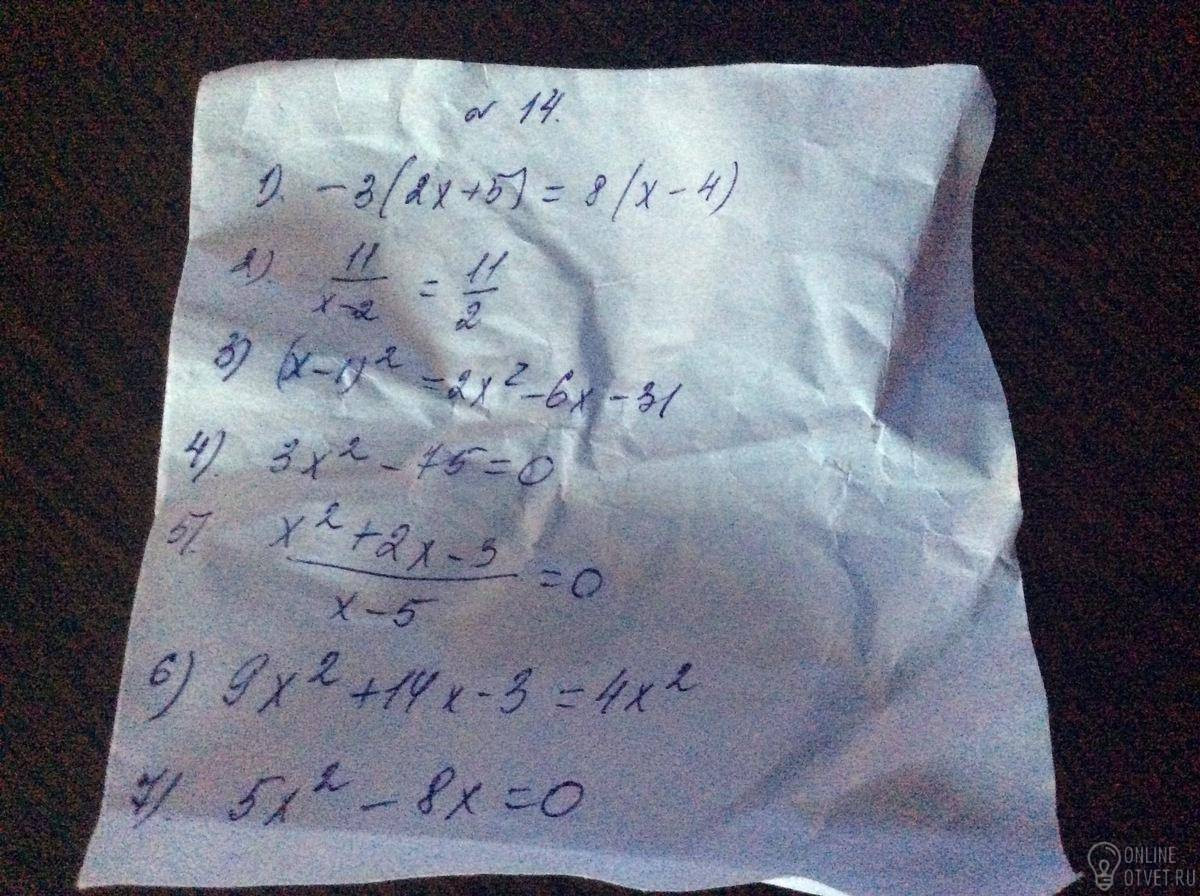 № 14.
1). -3(2x+5) = 8(x-4)
2). 11/(x-2) = 11/2
3) (x-1)² = 2x² - 6x - 31
4). 3x² - 75 = 0
5). (x² + 2x - 3)/(x - 5) = 0
6) 9x² + 14x - 3 = 4x²
7). 5x² - 8x = 0
ONLINE
OTVET.RU